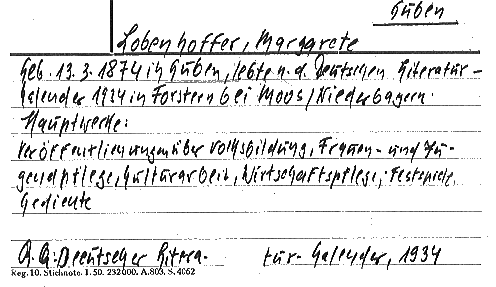 Guben
Lobenhoffer, Margarete
Geb. 13.3.1874 in Guben, lebte n. d. Deutschen Literatur-
kalender 1934 in Forstern bei Moos/Niederbayern.
Hauptwerke:
Veröffentlichungen über Volksbildung, Frauen- und Ju-
gendpflege, Kulturarbeit, Wirtschaftspflege, Festspiele,
Gedichte
Deutscher Litera- tur-Kalender, 1934
Reg. 10. Stichnote. I. 50. 232000. A.803. S. 4062